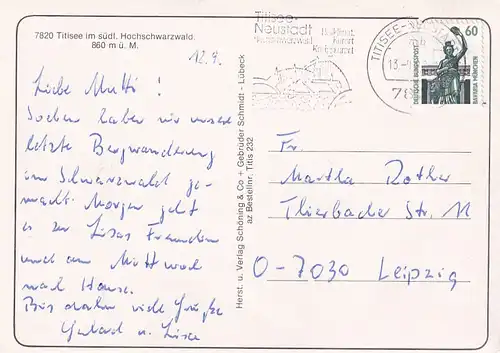 7820 Titisee im südl. Hochschwarzwald.
860 m ü. M.
12.9.
Liebe Mutti!
Soeben haben wir unsere
letzte Bergwanderung
im Schwarzwald ge-
macht. Morgen geht
es zu Lisas Freunden
und am Mittwoch
nach Hause.
Bis dahin viele Grüße
u. Lisa
Herst. u. Verlag Schöning & Co + Gebrüder Schmidt - Lübeck
az Bestellnr. Titis 232
Titisee-
Neustadt
Hochschwarzwald
Heilklimat.
Kurort
Kneippkurort
TITISEE-NEUSTADT
mb
13.
78
60
DEUTSCHE BUNDESPOST
BAVARIA MÜNCHEN
Fr.
Martha Rother
Thierbacher Str. 11
O-7030 Leipzig